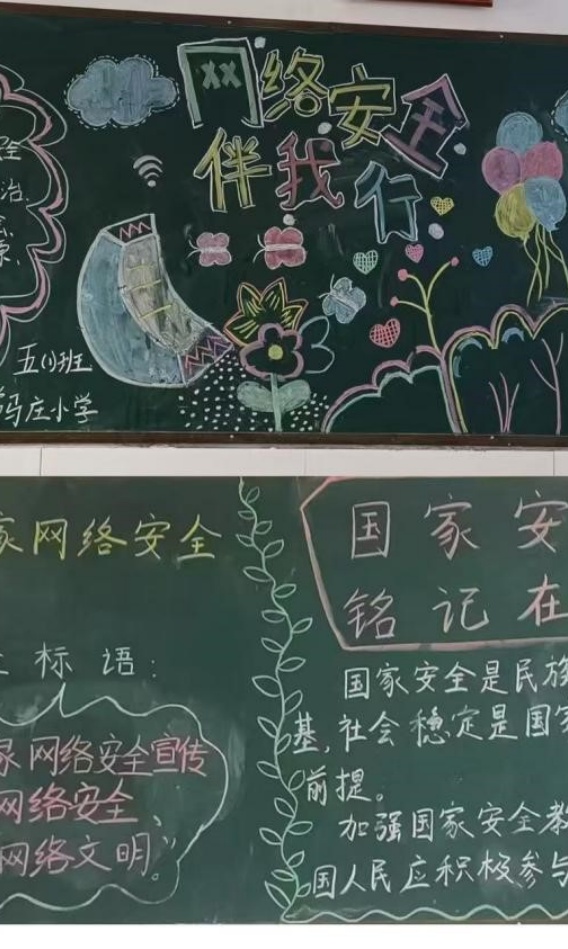 网络安全
伴我行
全
治,
五(1)班
冯庄小学
家网络安全
标语:
家网络安全宣传
网络安全、
网络文明”。
国家安
铭记在
国家安全是民族
基,社会稳定是国家
前提。
加强国家安全教
国人民应积极参与